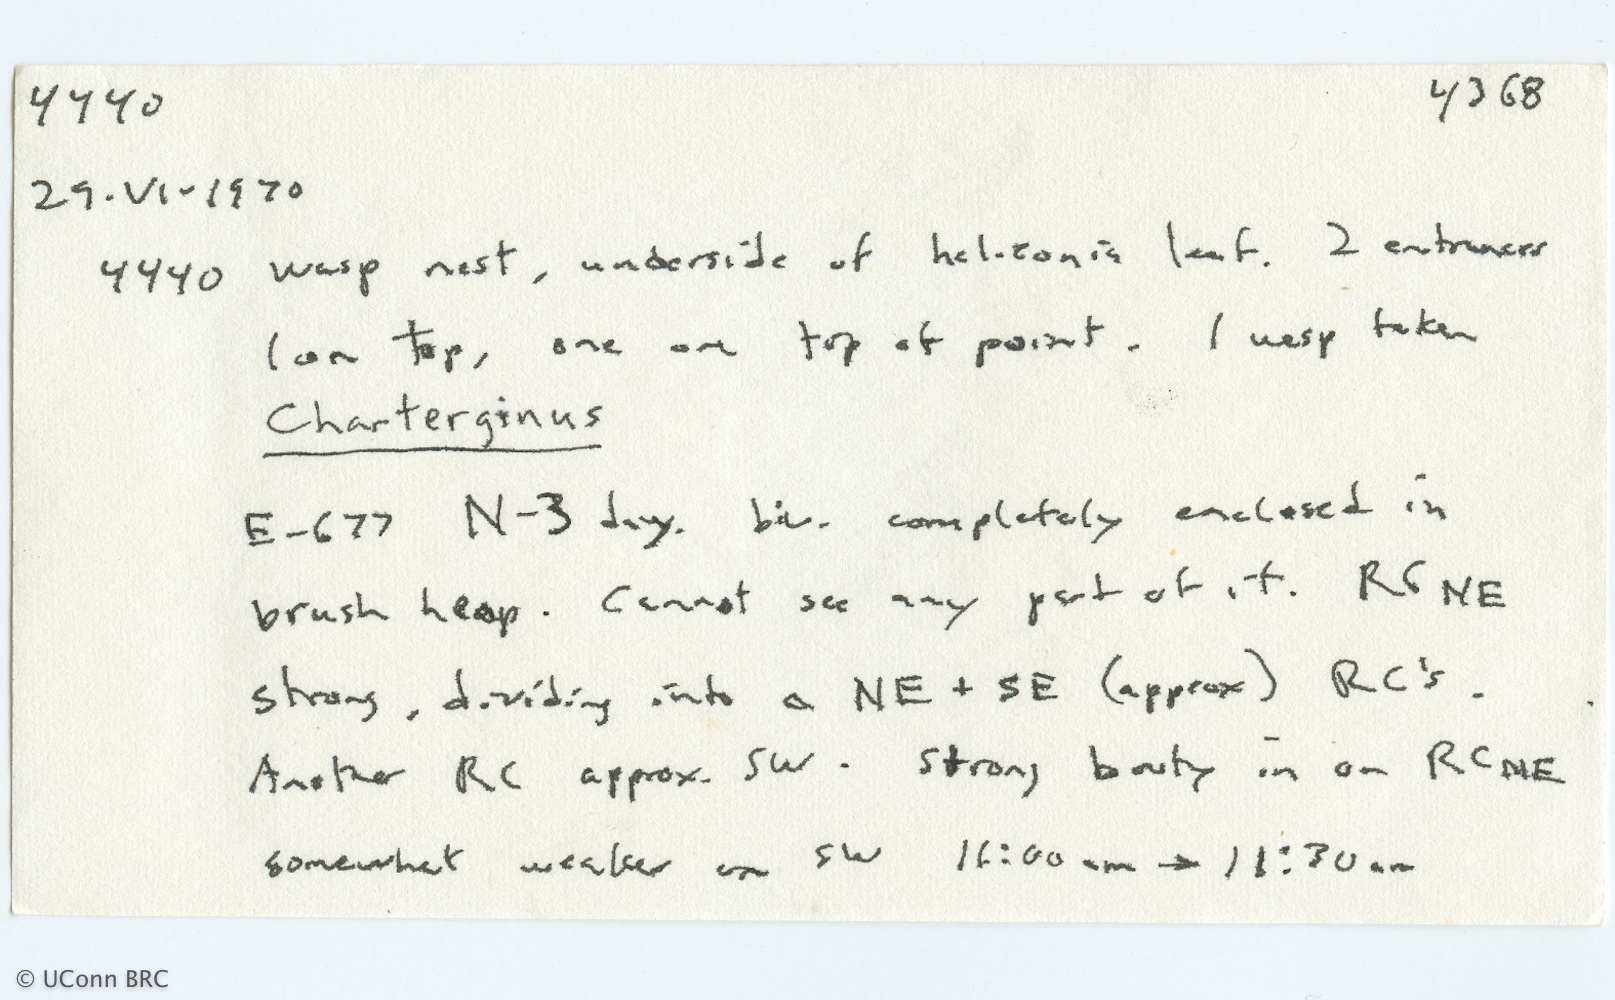 4440 4368
29-VI-1970
4440 wasp nest, underside of heliconia leaf. 2 entrances
1 on top, one on top of point. 1 wasp taken
Charterginus
E-677 N-3 day. biv. completely enclosed in
brush heap. Cannot see any part of it. RC NE
strong, dividing into a NE + SE (approx) RC's.
Another RC approx. SW. Strong booty in on RC NE
somewhat weaker on SW 11:00 am → 11:30 am
© UConn BRC